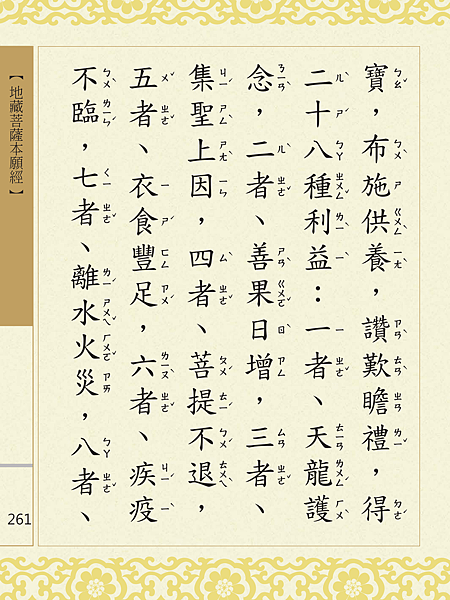 寶，布施供養，讚歎瞻禮，得
二十八種利益：一者、天龍護
念，二者、善果日增，三者、
集聖上因，四者、菩提不退，
五者、衣食豐足，六者、疾疫
不臨，七者、離水火災，八者、
【地藏菩薩本願經】
261